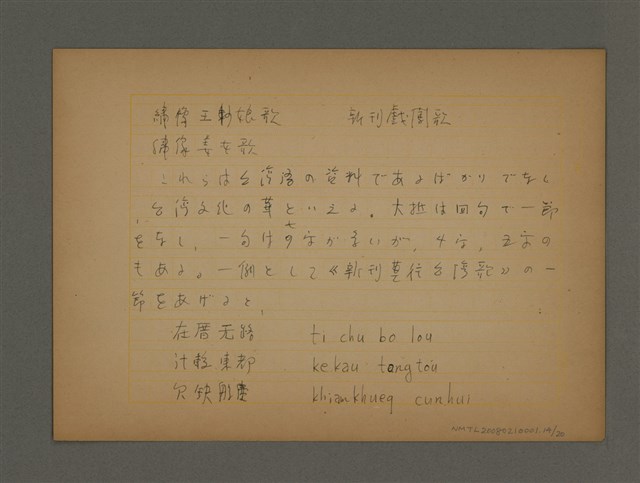 王魁娘歌　　新刊戯闍歌
歌
これらは台湾語の資料であるばかりでなく
台湾文化の華といえる。大抵は四句で一節
をなし、一句は七字が多いが、4字、五字の
もある。一例として《新刊莫往台湾歌》の一
節をあげると、
在厝无路　ti chu bo lou
計較東都　ke kau tang tou
欠缺船　khiam khueq cunhui
NMTL20089210001.14/20